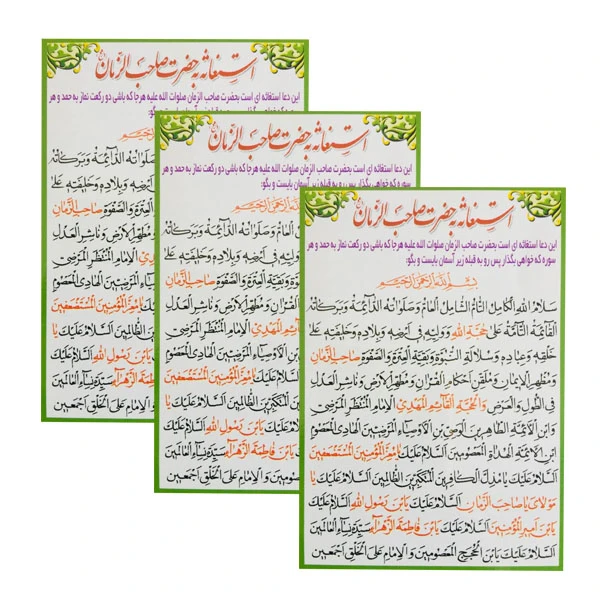 استغاثه به حضرت صاحب الزمان
این دعا استغاثه ای است بحضرت صاحب الزمان صلوات الله علیه هرجا که باشی دو رکعت نماز به حمد و هر
سوره که خواهی بگذار پس رو به قبله زیر آسمان بایست و بگو:
بسم الله الرحمن الرحیم
سَلامُ اللهِ الکامِلُ التّامُّ الشّامِلُ العامُّ وَصَلَواتُهُ الدّائِمَةُ وَبَرَکاتُهُ
القائِمَةُ التّامَّةُ عَلی حُجَّةِ اللهِ وَوَلِیِّهِ فی اَرْضِهِ وَبِلادِهِ وَخَلیفَتِهِ عَلی
خَلْقِهِ وَعِبادِهِ وَسُلالَةِ النُّبُوَّةِ وَبَقِیَّةِ العِتْرَةِ وَالصَّفْوَةِ صاحِبِ الزَّمانِ
وَمُظْهِرِ الاِیمانِ وَمُلَقِّنِ اَحْکامِ القُرْآنِ وَمُطَهِّرِ الاَرْضِ وَناشِرِ العَدْلِ
فِی الطُّولِ وَالعَرْضِ وَالحُجَّةِ القائِمِ المَهْدِیِّ الاِمامِ المُنْتَظَرِ المَرْضِیِّ
وَابْنِ الاَئِمَّةِ الطّاهِرینَ الوَصِیِّ بْنِ الاَوْصِیاءِ المَرْضِیّینَ الهادِی المَعْصُومِ
ابْنِ الاَئِمَّةِ الهُداةِ المَعْصُومینَ اَلسَّلامُ عَلَیْکَ یا مُعِزَّ المُؤْمِنینَ المُسْتَضْعَفینَ
اَلسَّلامُ عَلَیْکَ یا مُذِلَّ الکافِرینَ المُتَکَبِّرینَ الظّالِمینَ اَلسَّلامُ عَلَیْکَ یا
مَوْلایَ یا صاحِبَ الزَّمانِ اَلسَّلامُ عَلَیْکَ یَابْنَ رَسُولِ اللهِ اَلسَّلامُ عَلَیْکَ
یَابْنَ اَمیرِ المُؤْمِنینَ اَلسَّلامُ عَلَیْکَ یَابْنَ فاطِمَةَ الزَّهْراءِ سَیِّدَةِ نِساءِ العالَمینَ
اَلسَّلامُ عَلَیْکَ یَابْنَ الحُجَجِ المَعْصُومینَ وَالاِمامِ عَلَی الخَلْقِ اَجْمَعینَ